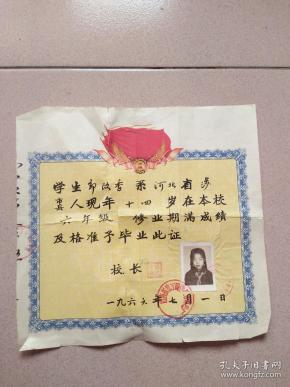 学生郭改香系河北省
县人现年十四岁在本校
六年级修业期满成绩
及格准予毕业此证
校长
一九六六年七月一日
孔夫子旧书网